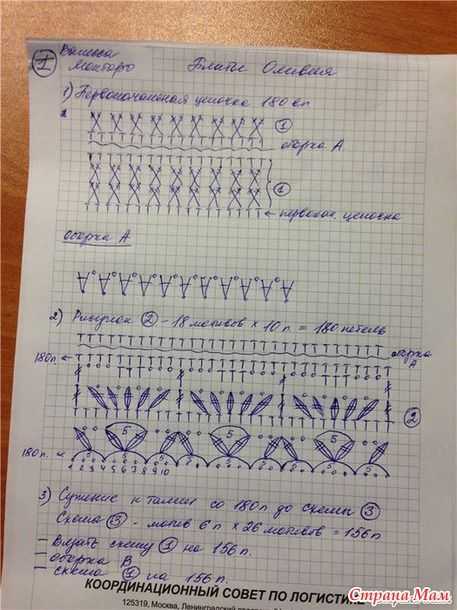 ① Ванесса
Монторо
Платье Оливия
1) Первоначальная цепочка 180 вп
①
оборка А
①
← первонач. цепочка
оборка А
2) Рисунок ② - 18 мотивов × 10 п = 180 петель
оборка
А
180п ←
②
5 5 5
180п. ←
1 2 3 4 5 6 7 8 9 10
3) Сужение к талии со 180п до схемы ③
Схема ③ - мотив 6 п × 26 мотивов = 156п
- Вязать схему ① на 156 п.
- оборка В
- схема ① на 156 п.
КООРДИНАЦИОННЫЙ СОВЕТ ПО ЛОГИСТИКЕ
125319, Москва, Ленинградский
Страна Мам